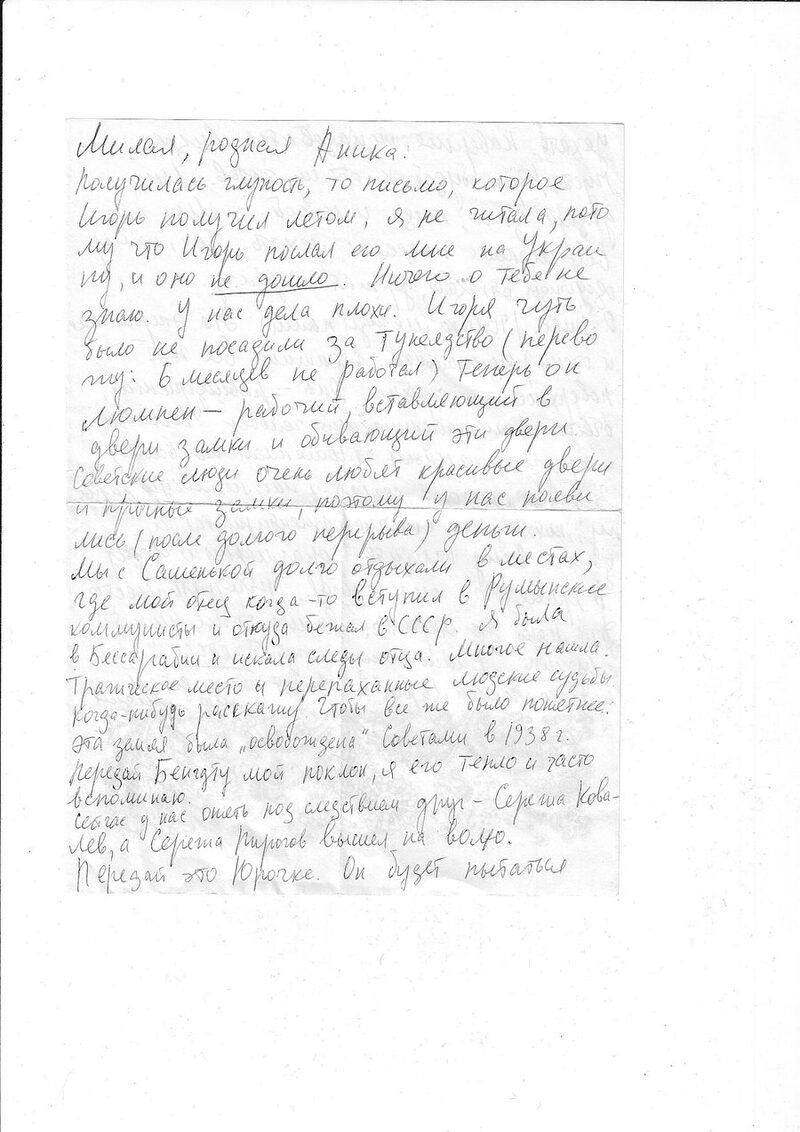 Милая, родная Аника.
Получилась глупость, то письмо, которое
Игорь получил летом, я не читала, пото
му что Игорь послал его мне на Украи
ну, и оно не дошло. Ничего о тебе не
знаю. У нас дела плохи. Игоря чуть
было не посадили за тунеядство (перево
жу: 6 месяцев не работал) Теперь он
люмпен – рабочий, вставляющий в
двери замки и обивающий эти двери.
Советские люди очень любят красивые двери
и прочные замки, поэтому у нас появи
лись (после долгого перерыва) деньги.
Мы с Сашенькой долго отдыхали в местах,
где мой отец когда-то вступил в Румынские
коммунисты и откуда бежал в СССР. Я была
в Бессарабии и искала следы отца. Многое нашла.
Трагическое место и перепаханные людские судьбы
когда-нибудь расскажу Чтобы все же было понятнее:
эта земля была „освобождена" Советами в 1938 г.
Передай Бенгдту мой поклон, я его тепло и часто
вспоминаю.
Сейчас у нас опять под следствием друг – Сережа Кова-
лев, а Сережа Пирогов вышел на волю.
Передай это Юрочке. Он будет пытаться